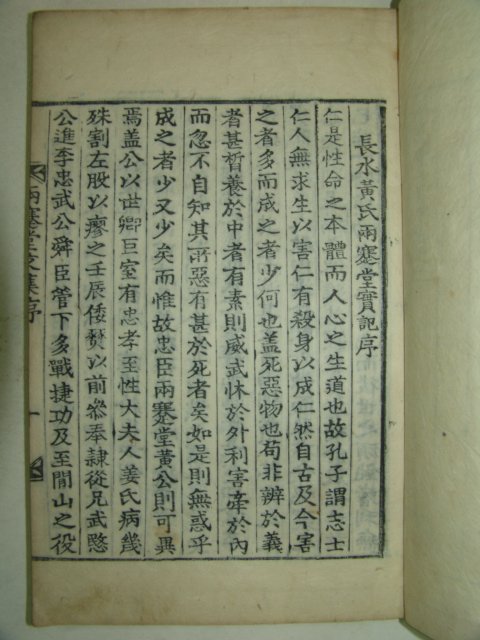 長水黃氏兩蹇堂實記序
仁是性命之本體而人心之生道也故孔子謂志士
仁人無求生以害仁有殺身以成仁然自古及今害
之者多而成之者少何也盖死惡物也苟非辨於義
者甚晳養於中者有素則威武怵於外利害牽於內
而忽不自知其所惡有甚於死者矣如是則無惑乎
成之者少又少矣而惟故忠臣兩蹇堂黃公則可異
焉盖公以世卿巨室有忠孝至性大夫人姜氏病幾
殊割左股以瘳之壬辰倭燹以前叅奉隷從兄武愍
公進李忠武公舜臣管下多戰捷功及至閒山之役
兩蹇堂文集序
一